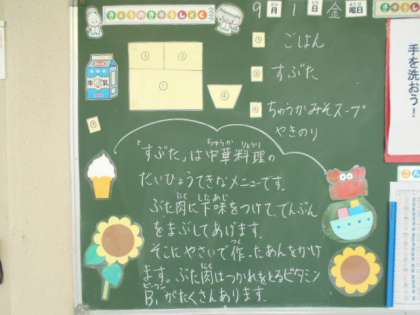 きょうのきゅうしょく
9月1日金曜日
① ごはん
② すぶた
③ ちゅうかみそスープ
やきのり
牛乳
手を洗おう!
「すぶた」は中華料理の
ちゅうか りょうり
だいひょうてきなメニューです。
ぶた肉に下味をつけて、でんぷん
にく したあじ
をまぶしてあげます。
そこにやさいで作ったあんをかけ
つく
ます。ぶた肉はつかれをとるビタミン
にく
B₁がたくさんあります。
ビーワン